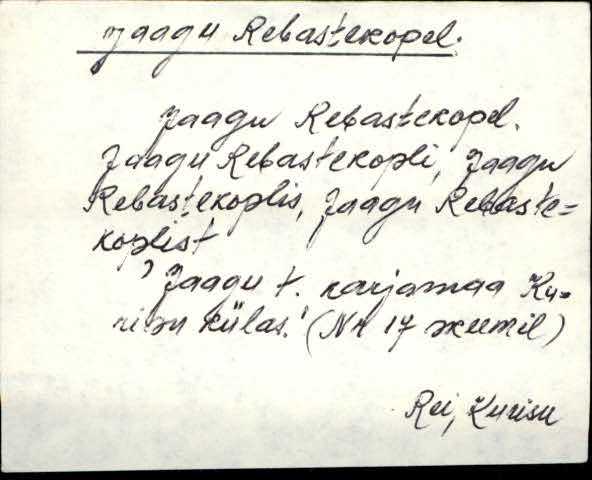 Jaagu Rebastekopel.
Jaagu Rebastekopel.
Jaagu Rebastekopli, Jaagu
Rebastekoplis, Jaagu Rebaste=
koplist
'Jaagu t. karjamaa Ku=
risu külas.' (Nr 17 skeemil)
Rei, Kurisu